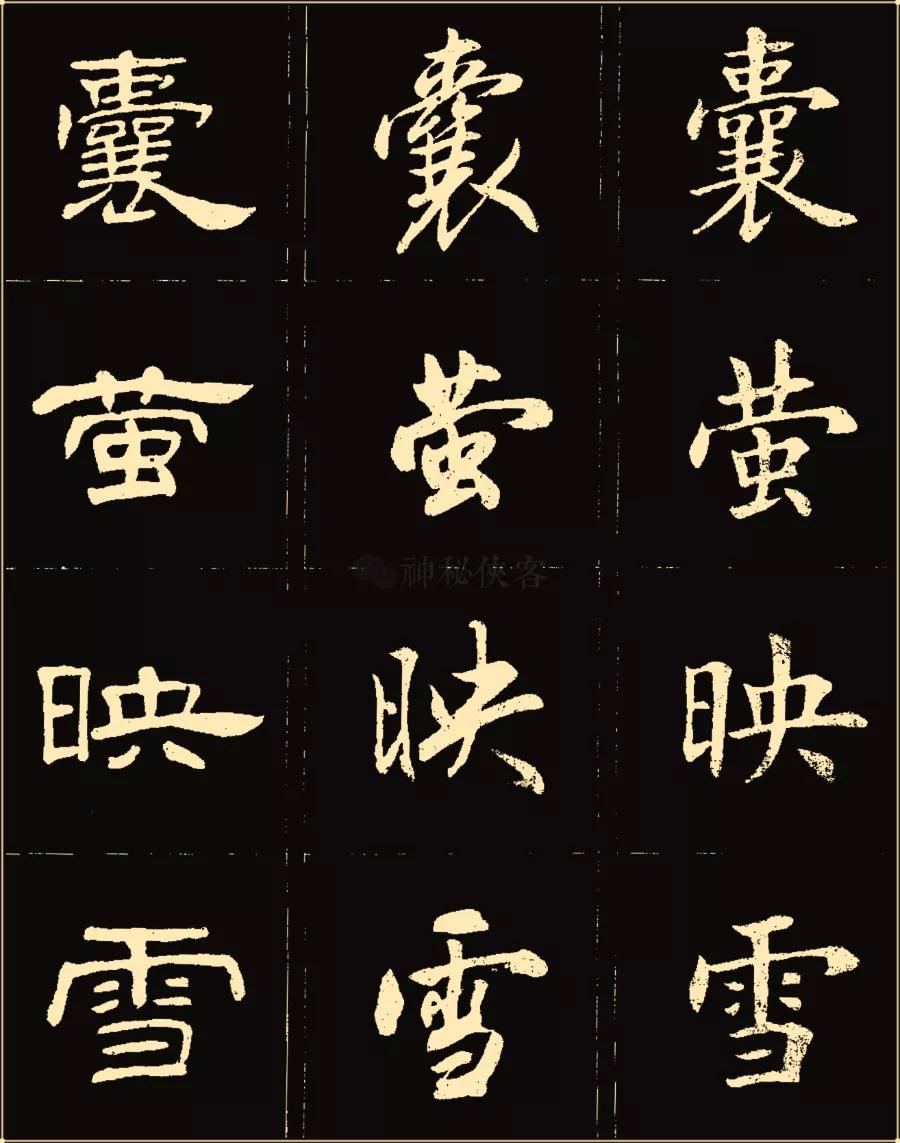 囊囊囊
萤萤萤
神秘俠客
映映映
雪雪雪